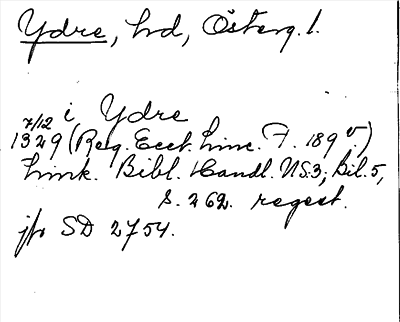 Ydre, hrd, Österg. l.
i Ydre
7/12
1329 (Reg. Eccl. Linc. F. 189 v.)
Link. Bibl. Handl. NS.3, Bil. 5,
s. 262. regest.
jfr SD 2754.